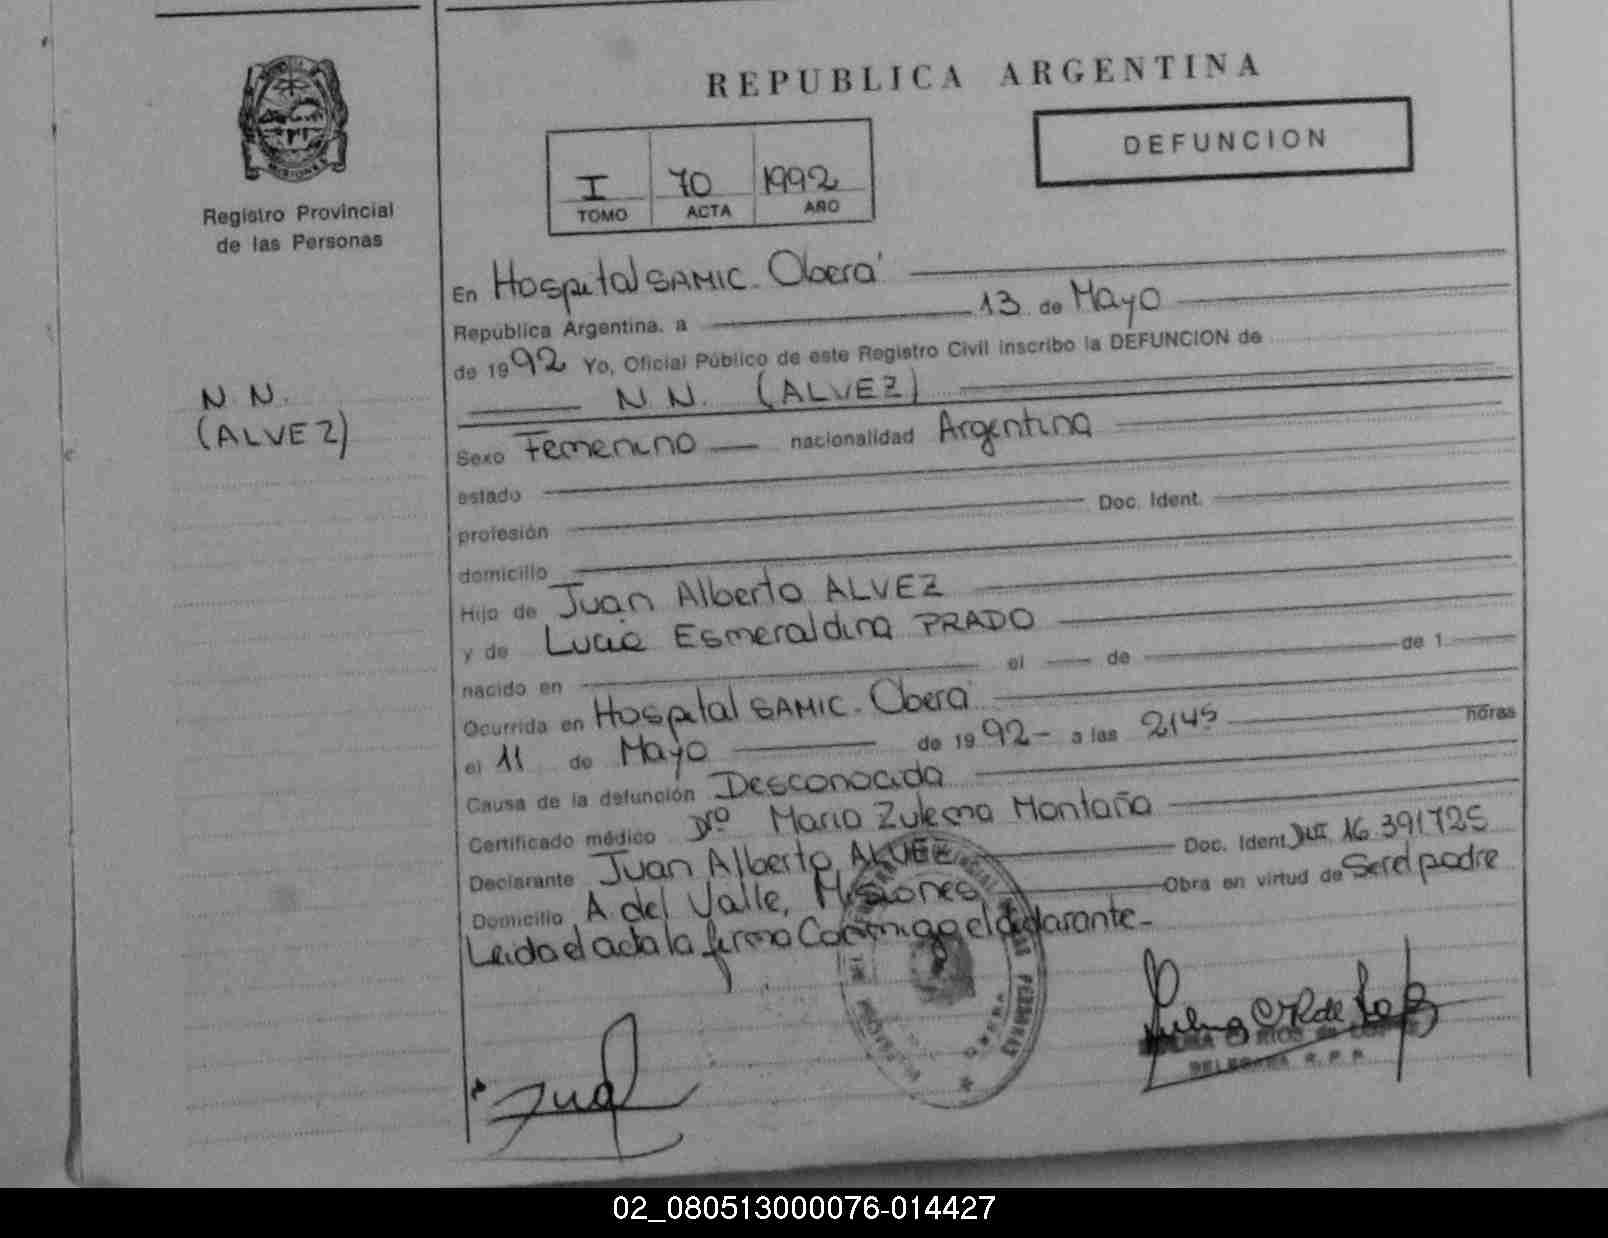 REPUBLICA ARGENTINA
DEFUNCION
I 70 1992
TOMO ACTA AÑO
Registro Provincial
de las Personas
N. N.
(ALVEZ)
En Hospital SAMIC - Oberá
República Argentina, a 13 de Mayo
de 1992 Yo, Oficial Público de este Registro Civil inscribo la DEFUNCION de
N. N. (ALVEZ)
Sexo Femenino nacionalidad Argentina
estado
profesión Doc. Ident.
domicilio
Hijo de Juan Alberto ALVEZ
y de Lucia Esmeraldina PRADO
nacido en el de de 1
Ocurrida en Hospital SAMIC - Oberá
el 11 de Mayo de 1992 - a las 2145 horas
Causa de la defunción Desconocida
Certificado médico Dra Maria Zulema Montaña
Declarante Juan Alberto ALVEZ Doc. Ident. DNI 16.391725
Domicilio A. del Valle, Misiones Obra en virtud de Ser el padre
Leida el acta la firma Conmigo el declarante -
DELEGADA R. P. P.
02_080513000076-014427